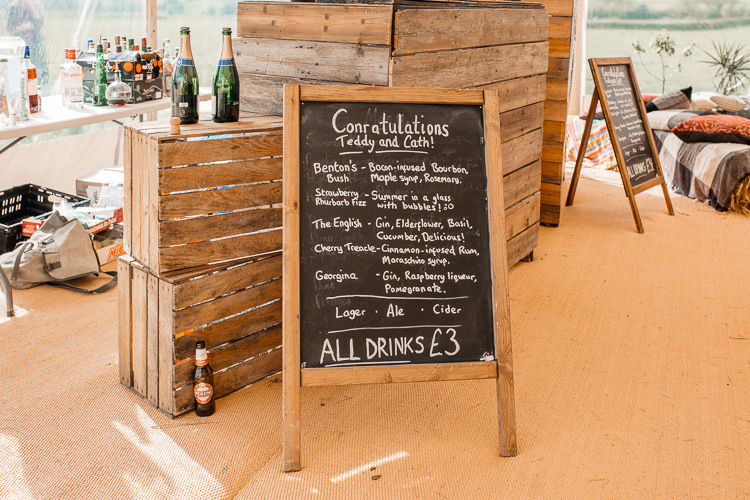 Conratulations
Teddy and Cath!
Benton's - Bacon-infused Bourbon
Bush Maple syrup, Rosemary.
Strawberry - Summer in a glass
Rhurbarb Fizz with bubbles! :o
The English - Gin, Elderflower, Basil,
Cucumber, Delicious!
Cherry Treacle - Cinnamon-infused Rum,
Maraschino syrup.
Georgina - Gin, Raspberry liqueur,
Pomegranate.
Lager · Ale · Cider
ALL DRINKS £3
ALL DRINKS £3